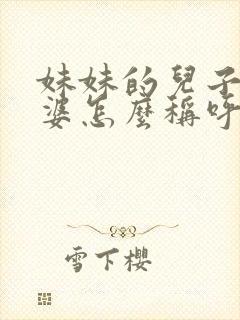 妹妹的兒子
婆怎麼稱呼
雪下櫻